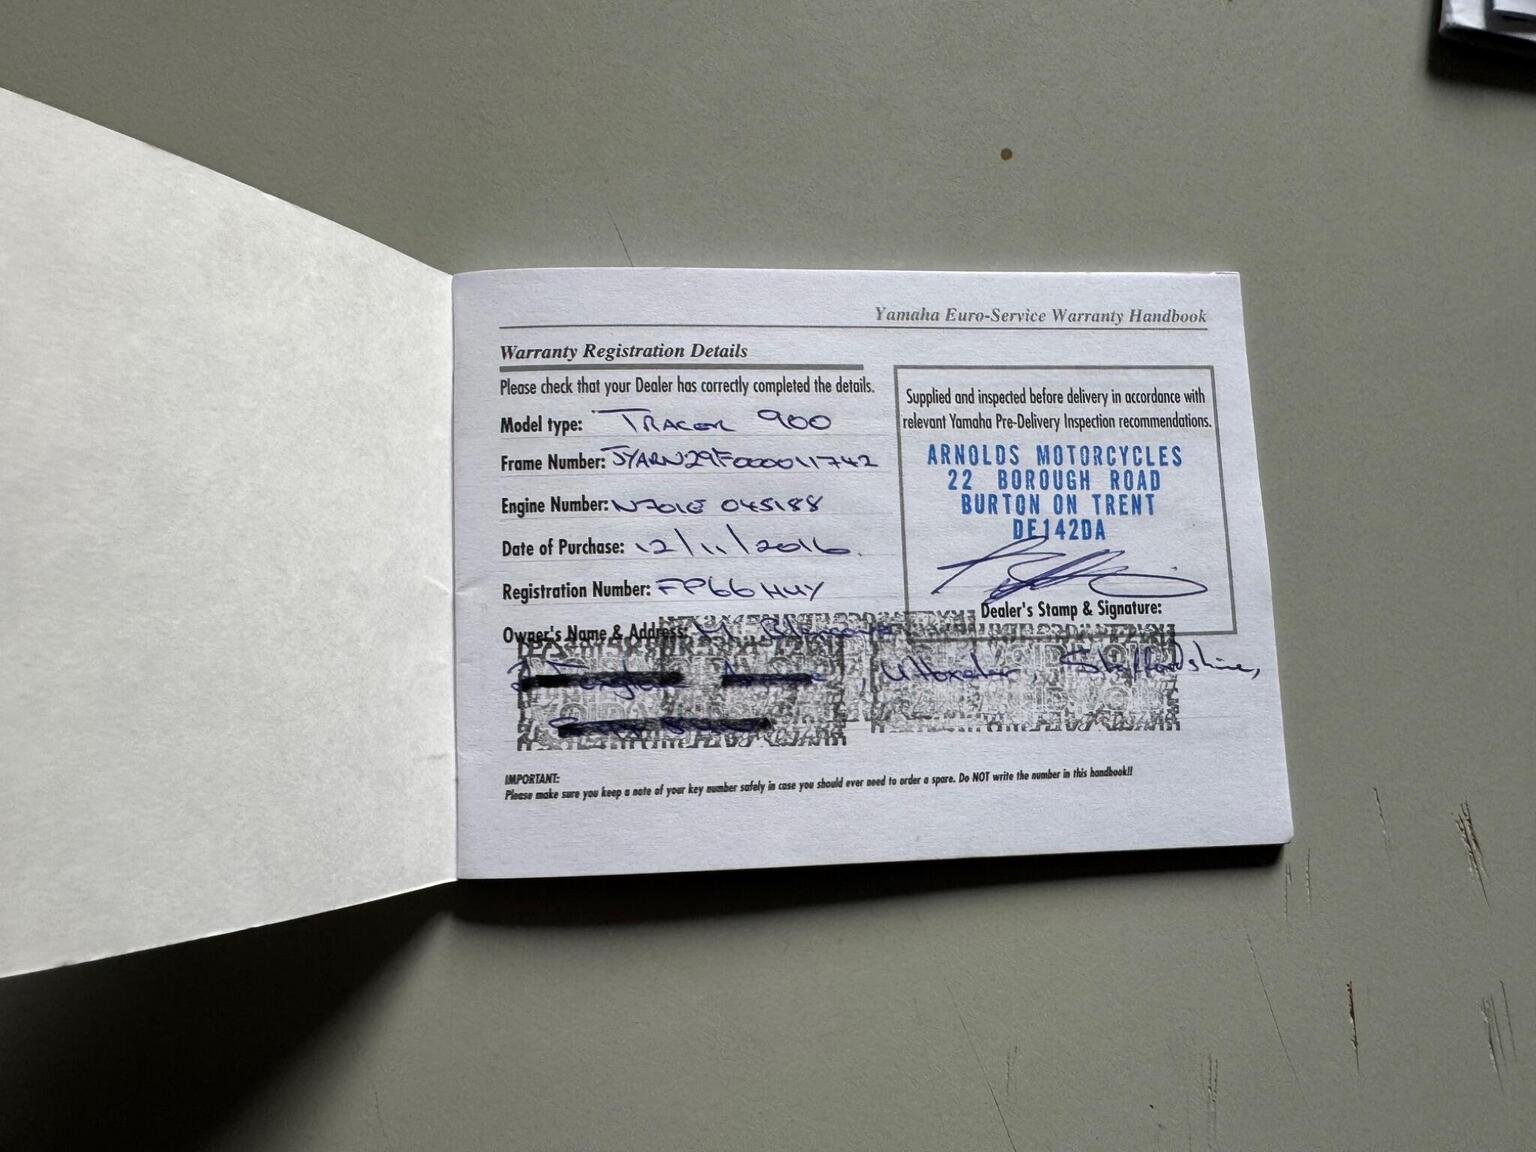 Yamaha Euro-Service Warranty Handbook
Warranty Registration Details
Please check that your Dealer has correctly completed the details.
Model type: TRACER 900
Frame Number: JYARN29F000011742
Engine Number: N701E 045188
Date of Purchase: 12/11/2016.
Registration Number: FP66HUY
Owner's Name & Address:
Uttoxeter, Staffordshire,
Supplied and inspected before delivery in accordance with
relevant Yamaha Pre-Delivery Inspection recommendations.
ARNOLDS MOTORCYCLES
22 BOROUGH ROAD
BURTON ON TRENT
DE142DA
Dealer's Stamp & Signature:
IMPORTANT:
Please make sure you keep a note of your key number safely in case you should ever need to order a spare. Do NOT write the number in this handbook!!